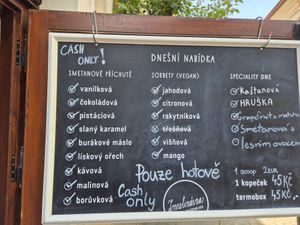 CASH
ONLY!
DNEŠNÍ NABÍDKA
SMETANOVÉ PŘÍCHUTĚ
vanilková
čokoládová
pistáciová
slaný karamel
burákové máslo
lískový ořech
kávová
malinová
borůvková
SORBETY (VEGAN)
jahodová
citronová
rakytníková
třešňová
višňová
mango
SPECIALITY DNE
Kaštanová
HRUŠKA
Smetanová s
lesním ovocem
Pouze hotově
Cash
only
1 scoop 2EUR
1 kopeček 45Kč
termobox 45Kč